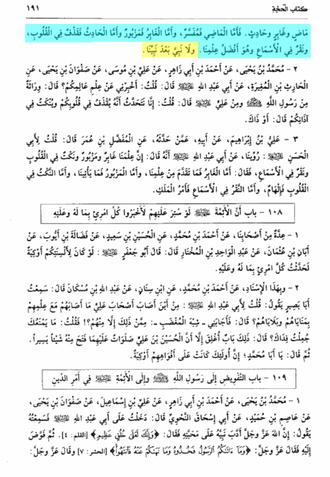 كتاب الحجة ١٩١
ماض وغابر وحادث. فأما الماضي فمفسر، وأما الغابر فمزبور وأما الحادث فقذف في القلوب،
ونقر في الأسماع وهو أفضل علمنا. ولا نبي بعد نبينا.
٢ - محمد بن يحيى، عن أحمد بن أبي زاهر، عن علي بن موسى، عن صفوان بن يحيى، عن
الحارث بن المغيرة، عن أبي عبد الله قال: قلت: أخبرني عن علم عالمكم؟ قال: وراثة
من رسول الله ومن علي قال: قلت: إنا نتحدث أنه يقذف في قلوبكم وينكت في
آذانكم قال: أو ذاك.
٣ - علي بن إبراهيم، عن أبيه، عمن حدثه، عن المفضل بن عمر قال: قلت لأبي
الحسن: روينا، عن أبي عبد الله أنه قال: إن علمنا غابر ومزبور ونكت في القلوب
ونقر في الأسماع، فقال: أما الغابر فما تقدم من علمنا، وأما المزبور فما يأتينا، وأما النكت في
القلوب فإلهام وأما النقر في الأسماع فأمر الملك.
١٠٨ - باب أن الأئمة لو ستر عليهم لأخبروا كل امرئ بما له وعليه
١ - عدة من أصحابنا، عن أحمد بن محمد، عن الحسين بن سعيد، عن فضالة بن أيوب، عن
أبان بن عثمان، عن عبد الواحد بن المختار قال: قال أبو جعفر: لو كان لألسنتكم أوكية
لحدثت كل امرئ بما له وعليه.
٢ - وبهذا الإسناد، عن أحمد بن محمد، عن ابن سنان، عن عبد الله بن مسكان قال: سمعت
أبا بصير يقول: قلت لأبي عبد الله: من أين أصاب أصحاب علي ما أصابهم مع علمهم
بمناياهم وبلاياهم؟ قال: فأجابني - شبه المغضب -: ممن ذلك إلا منهم؟! فقلت: ما يمنعك
جعلت فداك؟ قال: ذلك باب أغلق إلا أن الحسين بن علي صلوات عليهما فتح منه شيئا يسيرا.
ثم قال: يا أبا محمد؛ إن أولئك كانت على أفواههم أوكية.
١٠٩ - باب التفويض إلى رسول الله وإلى الأئمة في أمر الدين
١ - محمد بن يحيى، عن أحمد بن أبي زاهر، عن علي بن إسماعيل، عن صفوان بن يحيى،
عن عاصم بن حميد، عن أبي إسحاق النحوي قال: دخلت على أبي عبد الله فسمعته
يقول: إن الله عز وجل أدب نبيه على محبته فقال: ﴿وإنك لعلى خلق عظيم﴾ [القلم: ٤]. ثم فوض
إليه فقال عز وجل: ﴿وما ءاتكم الرسول فخذوه وما نهكم عنه فانتهوا﴾ [الحشر: ٧] وقال عز وجل: